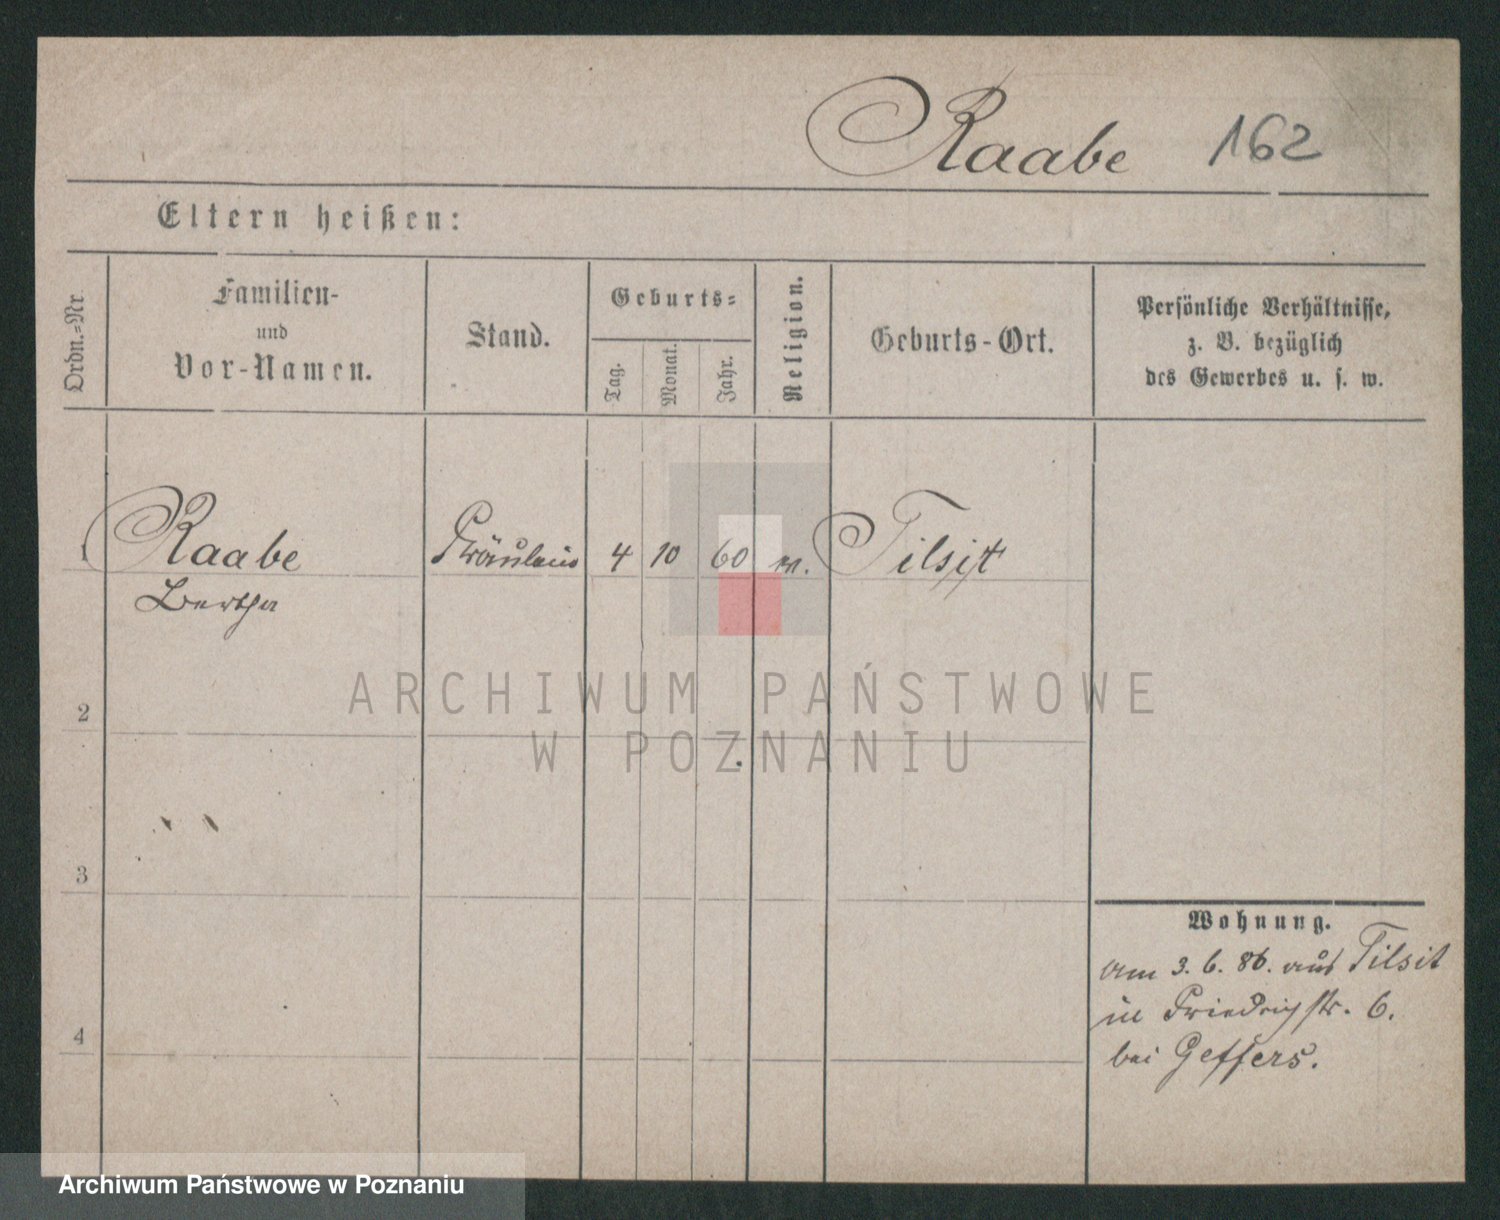 Raabe 162
Eltern heißen:
Ordn.-Nr.
Familien-
und
Vor-Namen.
Stand.
Geburts-
Tag.
Monat.
Jahr.
Religion.
Geburts-Ort.
Persönliche Verhältnisse,
z. B. bezüglich
des Gewerbes u. s. w.
1 Raabe Fräulein 4 10 60 Tilsit
Bertha
2
3
4
Wohnung.
am 3. 6. 86. aus Tilsit
in Friedrichstr. 6.
bei Geffers.
ARCHIWUM PAŃSTWOWE
W POZNANIU
Archiwum Państwowe w Poznaniu